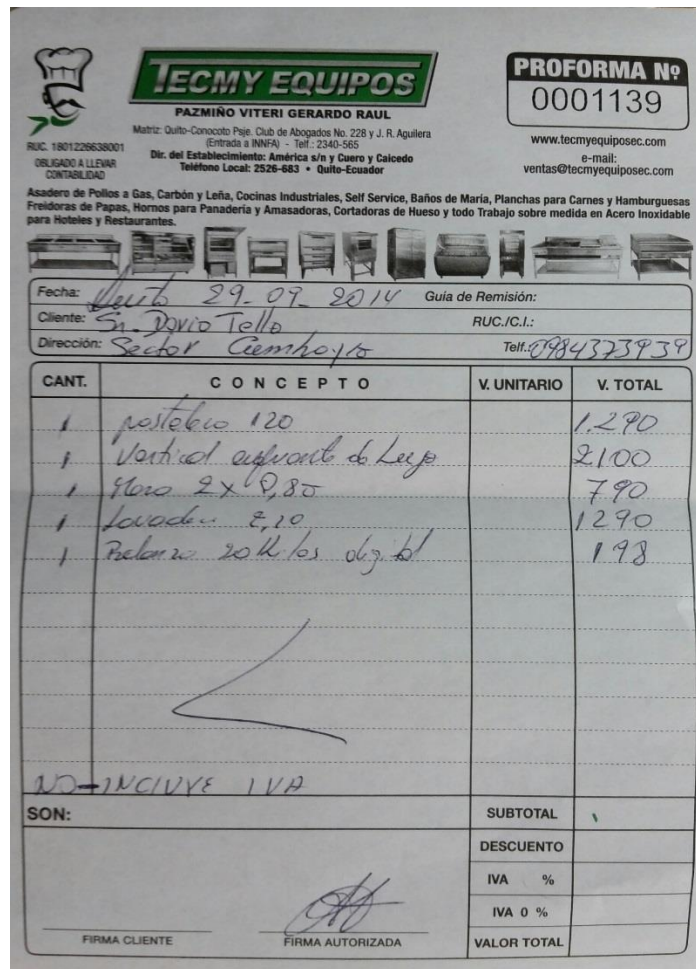 TECMY EQUIPOS
PAZMIÑO VITERI GERARDO RAUL
Matriz: Quito-Conocoto Psje. Club de Abogados No. 228 y J. R. Aguilera
(Entrada a INNFA) - Telf.: 2340-565
Dir. del Establecimiento: América s/n y Cuero y Caicedo
Teléfono Local: 2526-683 • Quito-Ecuador
RUC. 1801226638001
OBLIGADO A LLEVAR
CONTABILIDAD
PROFORMA Nº
0001139
www.tecmyequiposec.com
e-mail:
ventas@tecmyequiposec.com
Asadero de Pollos a Gas, Carbón y Leña, Cocinas Industriales, Self Service, Baños de María, Planchas para Carnes y Hamburguesas
Freidoras de Papas, Hornos para Panadería y Amasadoras, Cortadoras de Hueso y todo Trabajo sobre medida en Acero Inoxidable
para Hoteles y Restaurantes.
Fecha: 29-09-2014 Guía de Remisión:
Cliente: Sr. Dario Tello RUC./C.I.:
Dirección: Sector Telf.: 0984373939
CANT. CONCEPTO V. UNITARIO V. TOTAL
1 120 1.290
1 Vertical de 2100
1 2 x 0,80 790
1 2,20 1290
1 Balanza 20 Kilos digital 198
NO-INCLUYE IVA
SON: SUBTOTAL
DESCUENTO
IVA %
IVA 0 %
FIRMA CLIENTE FIRMA AUTORIZADA VALOR TOTAL